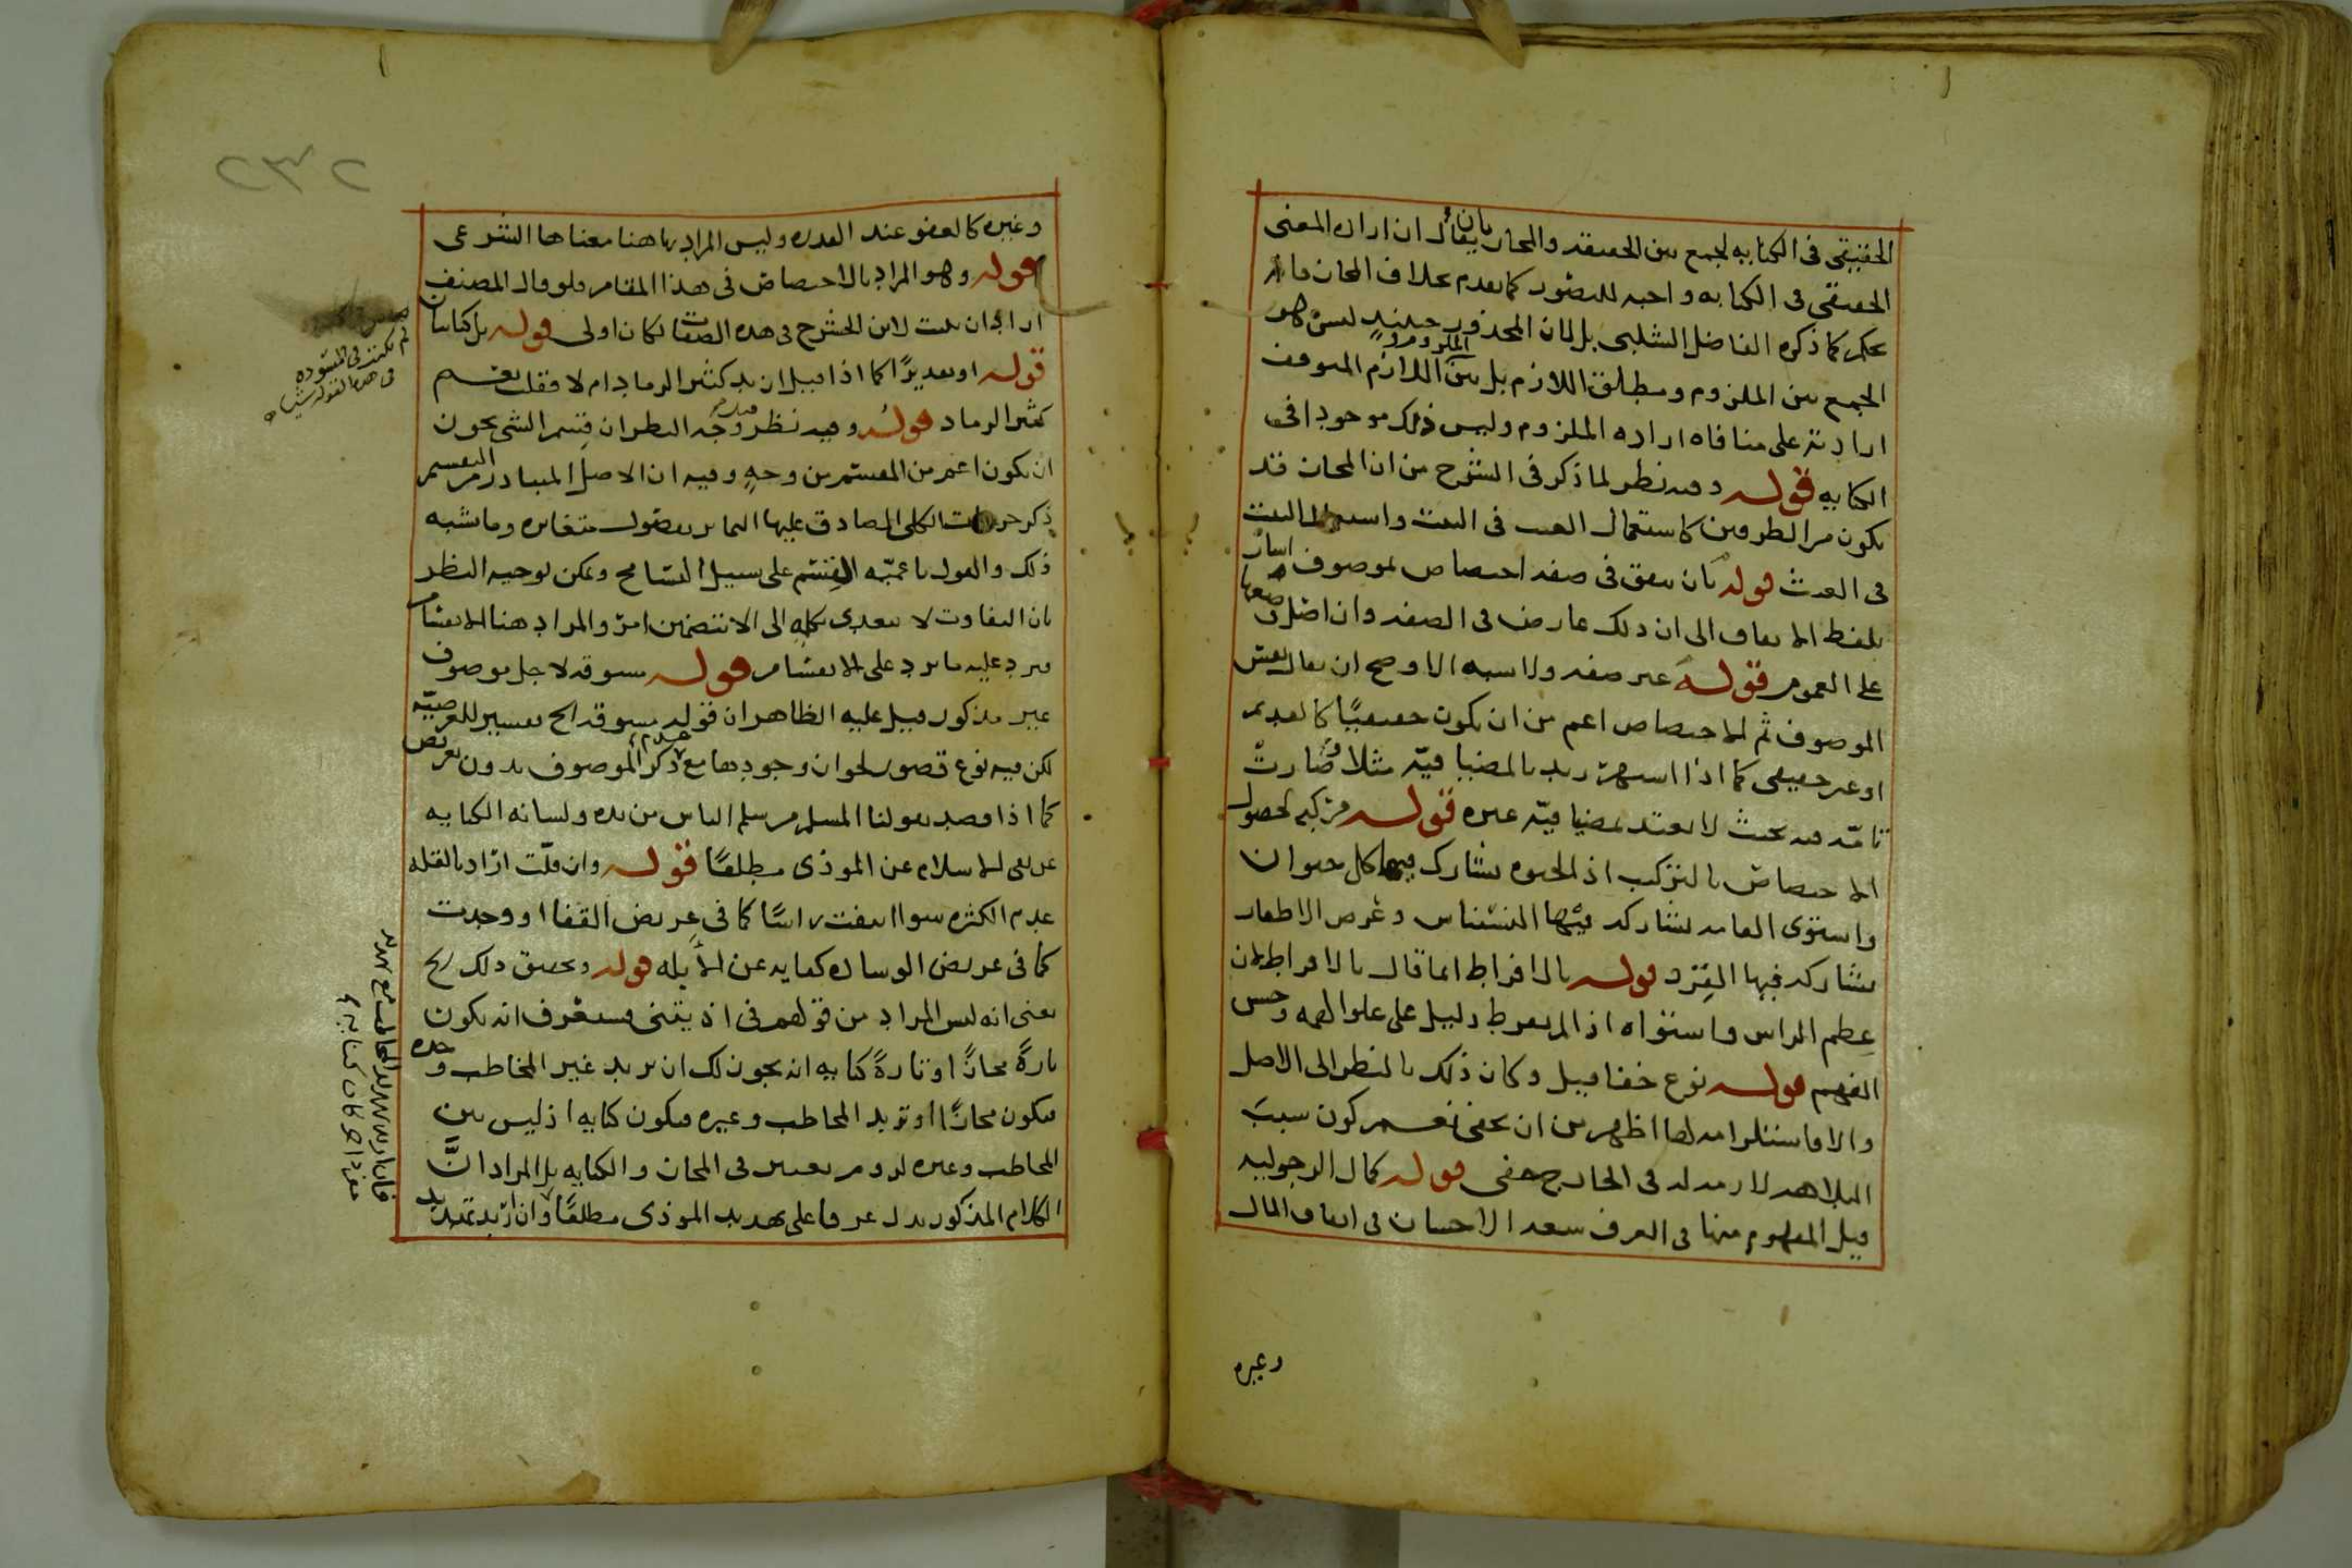 الحقيقي في الكنايه لجمع بين الحقيقه والمجاز بان يقال ان اراده المعنى
الحقيقي في الكنايه واجبه للتصور كما تقدم بخلاف المجاز فانه
تحكم كما ذكره الفاضل الشلبي بل لان المحذور حينئذ ليس هو
الجمع بين الملزوم ومطلق اللازم بل بين الملزوم واللازم المتوقف
ارادته على منافاه اراده الملزوم وليس ذلك موجودا في
الكنايه قوله وفيه نظر لما ذكر في الشرح من ان المجاز قد
يكون من الطرفين كاستعمال الغيث في النبت واستعمال النبت
في الغيث قوله بان يتفق في صفه اختصاص بموصوف اشار
بلفظ الاتفاق الى ان ذلك عارض في الصفه وان اصل وضعها
على العموم قوله عبر صفه ولا شبه الاوضح ان يقال بعض
الموصوف ثم الاختصاص اعم من ان يكون حقيقيًا كالقديم
او غير حقيقي كما اذا اشتهر زيد بالمضيافيّه مثلا وصارت
تامّه فيه بحيث لا يعتد بمضيافيّه غيره قوله مركبه لحصول
الاختصاص بالتركيب اذ الحيوه يشارك فيها كل حيوان
واستوى القامه يشاركه فيها النسناس وعرض الاظفار
يشاركه فيها القرد قوله بالافراط انما قال بالافراط لان
عظم الراس واستواه اذا لم يفرط دليل على علو الهمه وحسن
الفهم قوله نوع خفا قيل وكان ذلك بالنظر الى الاصل
والا فاستلزامه لها اظهر من ان يخفى نعم كون سبب
البلاهه لازمه له في الخارج خفي قوله كمال الرجوليه
قيل المفهوم منها في العرف سعه الاحسان في انفاق المال
وغيره
٢٣٢
وغيره كالعفو عند القدره وليس المراد بها هنا معناها الشرعي
قوله وهو المراد بالاختصاص في هذا المقام فلو قال المصنف
اراد ان يثبت لابن الحشرج هذه الصفات لكان اولى قوله بل كنايتان
قوله او تقديرًا كما اذا قيل ان زيد كثير الرماد ام لا فقلت نعم
كثير الرماد قوله وفيه نظر قيل وجه النظر ان قسم الشي يجوز
ان يكون اعم من المقسم من وجه وفيه ان الاصل المتبادر من التقسيم
ذكر جزئيات الكلي الصادق عليها المتمايز بفصول متغايره وما شبه
ذلك والقول باعميّه القسم على سبيل التسامح ويمكن توجيه النظر
بان التفاوت لا يتعدى بكلمه الى الا بتضمين امر والمراد هنا الانقسام
فيرد عليه ما يرد على الانقسام قوله مسوقه لاجل موصوف
غير مذكور قيل عليه الظاهر ان قوله مسوقه الخ تفسير للعرضيّه
لكن فيه نوع قصور لجواز وجودها مع عدم ذكر الموصوف بدون تعريض
كما اذا قصد بقولنا المسلم من سلم الناس من يده ولسانه الكنايه
عن نفي الاسلام عن الموذي مطلقًا قوله وان قلّت اراد بالقله
عدم الكثره سوا انتفت راسًا كما في عريض القفا او وجدت
كما في عريض الوساده كنايه عن الابله قوله وتحقيق ذلك الخ
يعني انه ليس المراد من قولهم في اذيتني فستعرف انه يكون
تارةً مجازًا وتارةً كنايه انه يجوز لك ان تريد غير المخاطب وحده
فيكون مجازًا او تريد المخاطب وغيره فيكون كنايه اذ ليس بين
المخاطب وغيره لزوم يعتبر في المجاز والكنايه بل المراد انَّ
الكلام المذكور يدل عرفا على تهديد الموذي مطلقًا وان اريد تهديد
لم يكتب في المسوده
في هذه القوله شيا